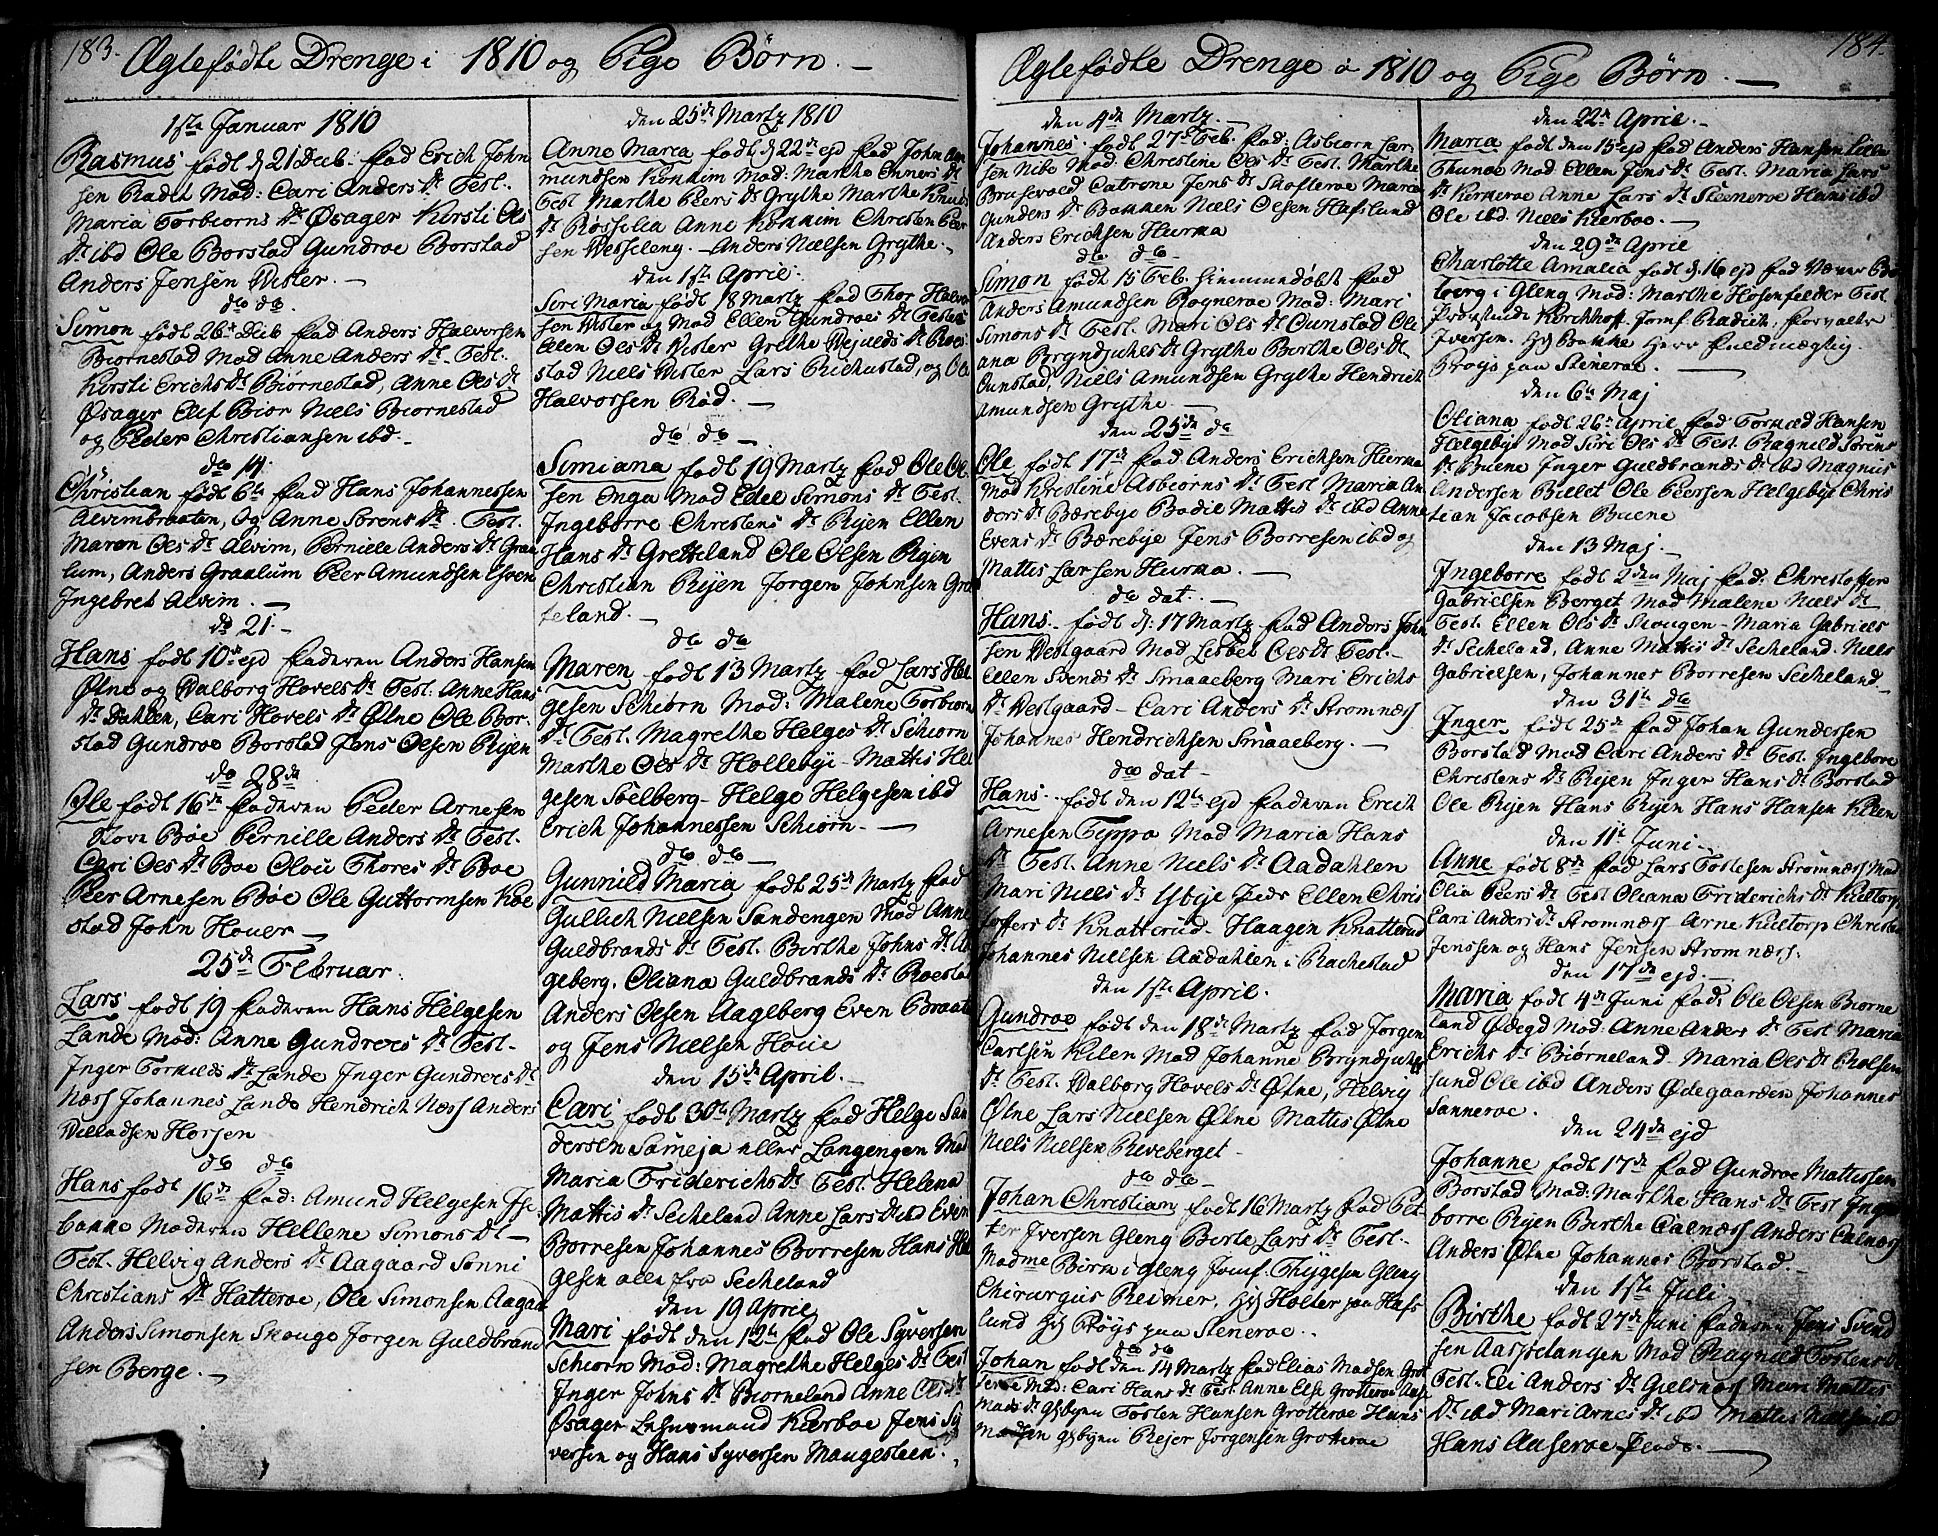 183.
Ægtefødte Drenge i 1810 og Pige Børn. —
1ste Januar 1810
Rasmus født d 21 Decb. fad Erich John
sen Radet Mod: Cari Anders Dr Test.
Maria Torbiorns Dr Øsager Kirsti Ols
Dr ibd Ole Borstad Gundroe Borstad
Anders Jensen Vister. —
do do.
Simon født 26de Decb fad Anders Halvorsen
Biørnestad Mod Anne Anders Dr. Test.
Kirsti Erichs Dr Biørnestad, Anne Ols Dr
Øsager Elef Bior Niels Biornestad
og Peder Christiansen ibd.
do 14.
Christian født 6te fad Hans Johannessen
Alvimbraaten, og Anne Sørens Dr. Test.
Maren Oes Dr Alvim, Pernille Anders Dr Graa
lum, Anders Graalum Peer Amundsen
Ingebret Alvim. —
do 21. —
Hans født 10de ejd faderen Anders Hansen
Øtne og Valborg Hovels Dr Test: Anne Hans
Dr Dahlen, Cari Hovels Dr Øtne Ole Bor
stad Gundroe Borstad Jens Olsen Rijen
do 28de
Ole født 16de faderen Peder Arnesen
Store Bøe Pernille Anders Dr Test.
Cari Oes Dr Boe Thores Dr Boe
Peer Arnesen Bøe Ole Guttormsen Kol
stad John Houer —
25de Februar.
Lars født 19 faderen Hans Helgesen
Lande Mod: Anne Gundrers Dr Test.
Inger Torkilds Dr Lande Inger Gundrers Dr
Næss Johannes Lande Hendrich Næss Anders
Villadsen Horsen
do do
Hans født 16de fad: Amund Helgesen
banne Moderen Hellene Simons Dr —
Test. Helvig Anders Dr Aagaard Sønni
Christians Dr Hatteroe, Ole Simonsen Aagaa
Anders Simonsen Skouge Jorgen Guldbrand
sen Berge. —
den 25de Martz 1810
Anne Maria født d 22de ejd fad John Am
mundsen Konnim Mod: Marthe Enners Dr
Test Marthe Peers Dr Grythe Marthe Knuds
Dr Røsselia Anne Konnim Christen Peer
sen Vesseleng. — Anders Nielsen Grythe.
den 1ste April.
Siri Maria født 18 Martz fad Thor Halvor
sen Vister og Mod Ellen Gundroes Dr Testes
Ellen Oes Dr Vister Grethe Rejulds Dr Roe
stad Niels Vister Lars Richustad, og Ole
Halvorsen Rød. —
do do —
Simiana født 19 Martz fad Ole Ol
sen Enga Mod Edel Simons Dr Test.
Ingeborre Christens Dr Rijen Ellen
Hans Dr Gretteland Ole Olsen Rijen
Christian Rijen Jorgen Johnsen Gre
teland. —
do do
Maren født 13 Martz fad Lars Hel
gesen Schiørn Mod: Malene Torbiorn
Dr Test. Magrethe Helges Dr Schiorn
Marthe Oes Dr Hollebye Mattis Hel
gesen Soelberg Helge Helgesen ibd
Erich Johannessen Schiorn. —
do do —
Gunnild Maria født 25de Martz fad
Gullich Nielsen Sandengen Mod Anne
Guldbrands Dr Test. Birthe Johns Dr Aa
geberg. Oliana Guldbrands Dr Roestad
Anders Olsen Aagelberg Even Braate
og Jens Nielsen Houe
den 15de April. —
Cari født 30te Martz fad Helge San
dersen Sameja eller Langengen Mod
Maria Friderichs Dr Test. Helena
Mattis Dr Secheland Anne Lars Dr ibd Even
Borresen Johannes Borresen Hans Hel
gesen alle fra Secheland
den 19 April
Mari født den 12te fad Ole Syversen
Schiorn Mod: Magrethe Helges Dr Test
Inger Johns Dr Biorneland Anne Ols Dr
Øsager Lehnsmand Kierboe Jens Sy
versen og Hans Syversen Maugesteen.
184.
Ægtefødte Drenge i 1810 og Pige Børn. —
den 4de Martz. —
Johannes. født 27de Feb. fad: Asbiorn Lar
sen Nibe Mod: Christine Oes Dr Test. Marthe
Brusevold Catrine Jens Dr Skofteroe Maria
Gunders Dr Bakken Niels Olsen Hafslund
Anders Erichsen Hurma
do do.
Simon født 15 Feb. hiemmedøbt fad
Anders Amundsen Rogneroe Mod: Mari
Simons Dr Test. Mari Oes Dr Cunstad Oli
ana Bryndjuhes Dr Grythe Birthe Oes Dr
Cunstad, Niels Amundsen Grythe Hendrich
Amundsen Grythe —
den 25de do
Ole født 17de fad. Anders Erichsen Heerma
Mod Kristine Asbiorns Dr Test Maria An
ders Dr Bærebye Bodil Mattis Dr ibd Anne
Evens Dr Bærebye Jens Borresen ibd og
Mattis Larsen Hurma. —
do dat. —
Hans. — født d. 17 Martz fad Anders John
sen Vestgaard Mod Lisbet Oes Dr Test. —
Ellen Svends Dr Smaaeberg Mari Erichs
Dr Vestgaard — Cari Anders Dr Stromnæss
Johannes Hendrichsen Smaaeberg. —
do dat —
Hans. født den 12te ejd faderen Erich
Arnesen Teppo Mod Maria Hans
Dr Test. Anne Niels Dr Aadahlen
Mari Niels Dr Ysbye Pede Ellen Chris
toffers Dr Knatterud — Haagen Knatterud
Johannes Nielsen Aadahlen i Rachestad
den 1ste April.
Gundroe født den 18de Martz fad Jorgen
Carlsen Kilen Mod Johanne Bryndjuhs
Dr Test. Valborg Hovels Dr Øtne, Helvig
Øtne Lars Nielsen Øtne Mattis Øtne
Niels Nielsen Reveberget —
do do —
Johan Christian født 16 Martz fad Pet
ter Iversen Gleng Berte Lars Dr Test.
Madme Biørn i Gleng Jomf. Thygesen Gleng
Chirurgus Reimer, Holter paa Hafs
lund Røys paa Steneroe.
do do
Johan født den 14 Martz fad Elias Madsen Grot
teroe Mod: Cari Hans Dr Test. Anne Else Grotteroe Anne
Mads Dr Gjsbyen Tosten Hansen Grotteroe Hans
Madsen Gjsbyen Rejer Jorgensen Grotteroe
den 22de April. —
Maria født den 15de ejd fad Anders Hansen Lille
Thunoe Mod Ellen Jens Dr Test. Maria Lars
Dr Kirkeroe Anne Lars Dr Steeneroe Hans ibd
Ole ibd. Niels Kierboe. —
den 29de April
Charlotte Amalia født d. 16 ejd fad Verner
berg i Gleng Mod: Marthe Hosenfelder Test.
Provstinde Kirchhoff. Jomf. Radich, forvalter
Iversen. Bakke Herr fuldmægtig
Røys paa Steneroe. —
den 6te Maj
Oliana født 26de April fad Tormod Hansen
Helgebye Mod Siri Oes Dr Test. Ragnild Sorens
Dr Buene Inger Guldbrands Dr ibd Magnus
Andersen Billet Ole Peersen Helgebye Chris
tian Jacobsen Buene
den 13 Maj. —
Ingeborre født 2den Maj fad: Christoffer
Gabrielsen Berget Mod Malene Niels Dr
Test. Ellen Oes Dr Skougen — Maria Gabriels
Dr Secheland, Anne Mattis Dr Secheland. Niels
Gabrielsen, Johannes Borresen Secheland —
den 31te do
Inger. født 25de fad Johan Gundersen
Borstad Mod Cari Anders Dr Test. Ingeborre
Christens Dr Rijen Inger Hans Dr Borstad
Ole Rijen Hans Rijen Hans Hansen Kilen
den 11te Juni —
Anne født 8de fad Lars Tostesen Stromnæss Mod
Olia Peers Dr Test Oliana Friderichs Dr Kultorp
Cari Anders Dr Stromnæss — Arne Kultorp Christen
Jenssen og Hans Jensen Stromnæss.
den 17de ejd. —
Maria født 4de Juni fad: Ole Olsen Biorne
land Ødegd Mod: Anne Anders Dr Test Maria
Erichs Dr Biørneland — Maria Oes Dr
sund Ole ibd Anders Ødegaarden Johannes
Sanneroe.
den 24de ejd
Johanne født 17de fad Gundroe Mattissen
Borstad Mod: Marthe Hans Dr Test Inge
borre Rijen Birthe Calnæss Anders Calnæss
Anders Øtne Johannes Borstad. —
den 1ste Juli
Birthe født 27de Juni faderen Jens Svend
sen Aasselangen Mod Ragnild Tostens Dr
Test. Eli Anders Dr Gielsnæss Mari Mattis
Dr ibd Mari Arnes Dr ibd Mattis Nielsen ibd
Hans Anseroe Pede. —